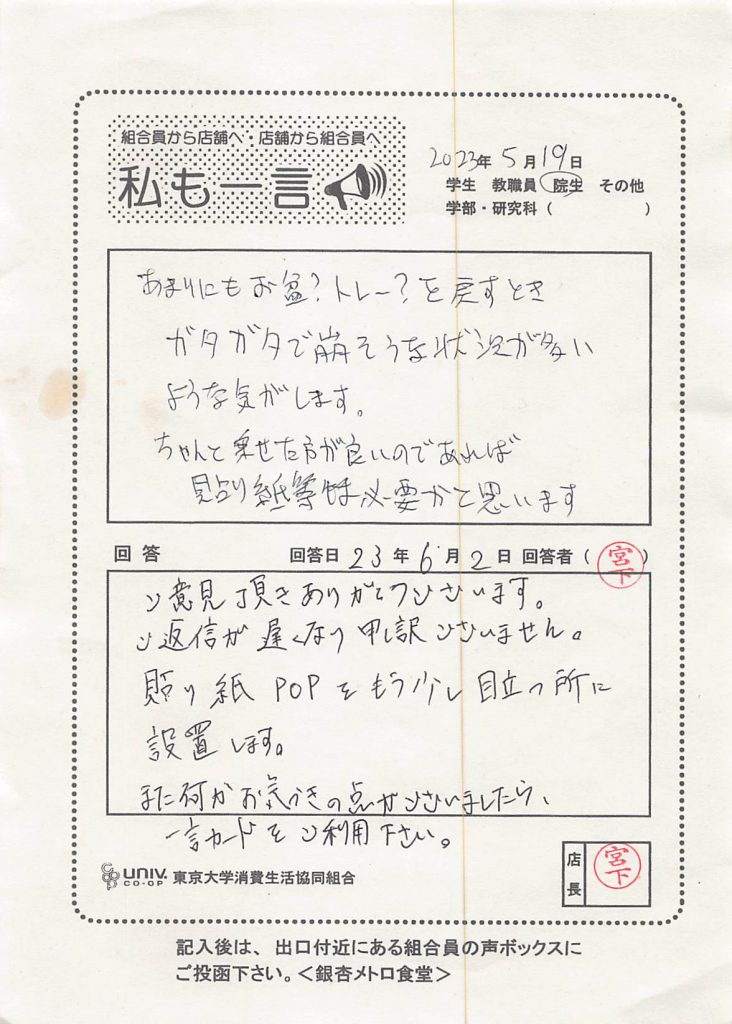 組合員から店舗へ・店舗から組合員へ
私も一言
2023年5月19日
学生 教職員 院生 その他
学部・研究科( )
あまりにもお盆?トレー?を戻すとき
ガタガタで崩そうな状況が多い
ような気がします。
ちゃんと乗せた方が良いのであれば
貼り紙等は必要かと思います
回答 回答日 23年6月2日 回答者(宮下)
ご意見頂きありがとうございます。
ご返信が遅くなり申し訳ございません。
貼り紙POPをもう少し目立つ所に
設置します。
また何かお気づきの点がございましたら、
一言カードをご利用下さい。
店長 宮下
UNIV. CO-OP 東京大学消費生活協同組合
記入後は、出口付近にある組合員の声ボックスに
ご投函下さい。<銀杏メトロ食堂>